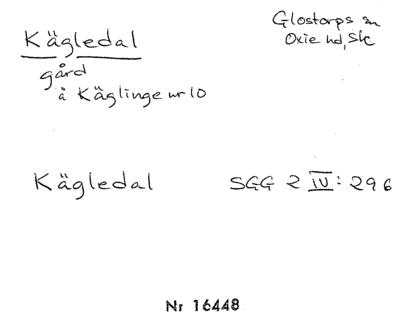 Kägledal
Glostorps sn
Oxie hd, Sk
gård
å Käglinge nr 10
Kägledal SGG 2 IV: 296
Nr 16448